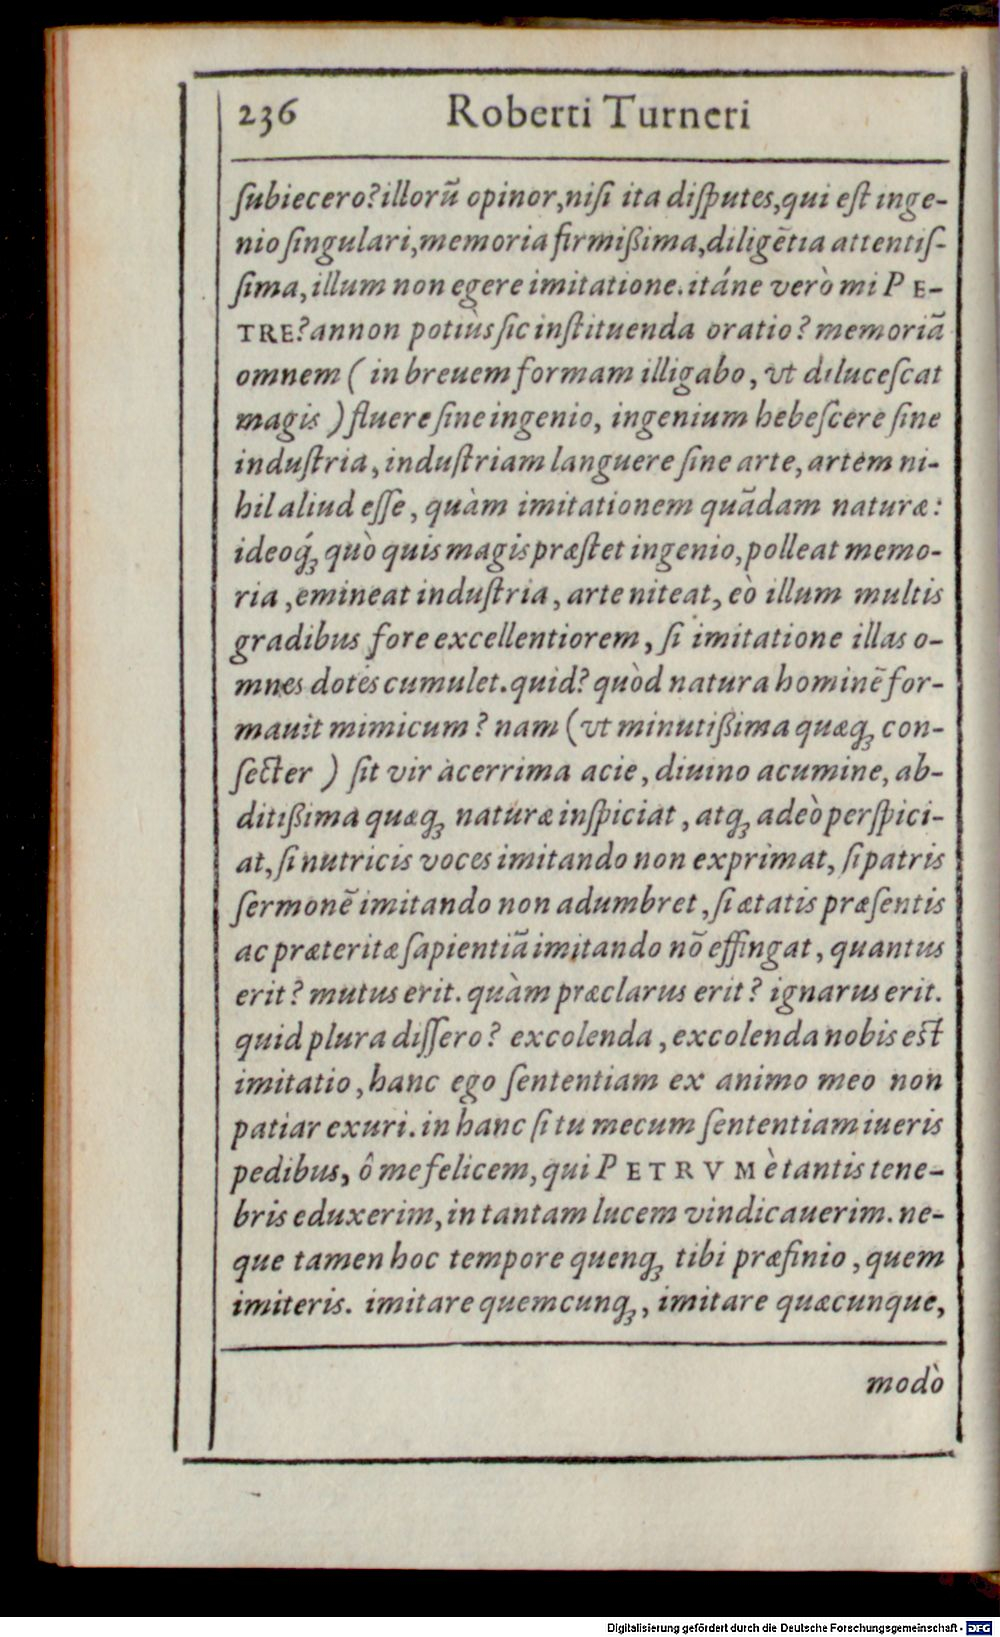 236 Roberti Turneri
ſubiecero?illorũ opinor,niſi ita diſputes,qui eſt inge-
nio ſingulari,memoria firmißima,diligẽtia attentiſ-
ſima,illum non egere imitatione.itáne verò mi PE-
TRE?annon potiùs ſic inſtituenda oratio? memoriã
omnem ( in breuem formam illigabo, vt diluceſcat
magis ) fluere ſine ingenio, ingenium hebeſcere ſine
induſtria, induſtriam languere ſine arte, artem ni-
hil aliud eſſe, quàm imitationem quãdam naturæ:
ideoq́ꝫ quò quis magis præſtet ingenio,polleat memo-
ria,emineat induſtria, arte niteat, eò illum multis
gradibus fore excellentiorem, ſi imitatione illas o-
mnes dotes cumulet.quid? quòd natura hominẽ for-
mauit mimicum? nam (vt minutißima quæqꝫ con-
ſecter ) ſit vir acerrima acie, diuino acumine, ab-
ditißima quæqꝫ naturæ inſpiciat, atqꝫ adeò perſpici-
at, ſi nutricis voces imitando non exprimat, ſi patris
ſermonẽ imitando non adumbret, ſi ætatis præſentis
ac præteritæ ſapientiã imitando nõ effingat, quantus
erit? mutus erit. quàm præclarus erit? ignarus erit.
quid plura diſſero? excolenda, excolenda nobis est
imitatio, hanc ego ſententiam ex animo meo non
patiar exuri. in hanc ſi tu mecum ſententiam iueris
pedibus, ô me felicem, qui PETRVM è tantis tene-
bris eduxerim, in tantam lucem vindicauerim. ne-
que tamen hoc tempore quenqꝫ tibi præfinio, quem
imiteris. imitare quemcunqꝫ, imitare quæcunque,
modò
Digitalisierung gefördert durch die Deutsche Forschungsgemeinschaft - DFG